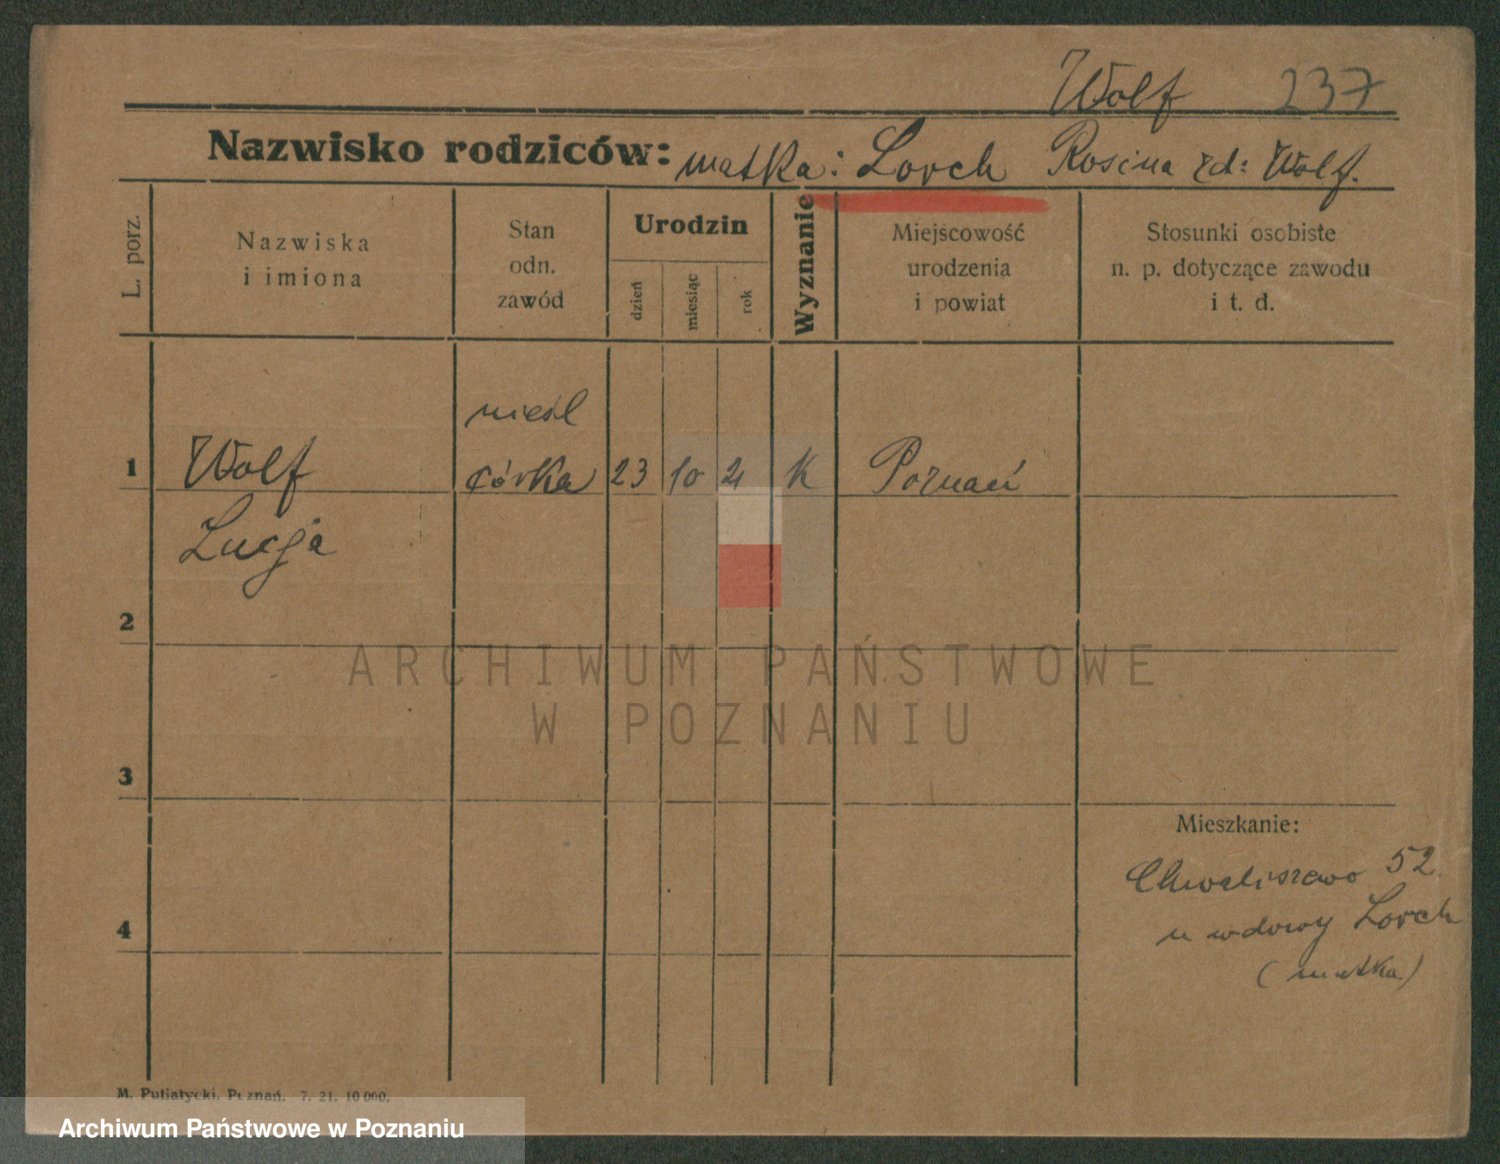 Wolf 237
Nazwisko rodziców: matka: Lorch Rosina zd: Wolf.
L. porz.
Nazwiska
i imiona
Stan
odn.
zawód
Urodzin
dzień
miesiąc
rok
Wyznanie
Miejscowość
urodzenia
i powiat
Stosunki osobiste
n. p. dotyczące zawodu
i t. d.
nieśl
1 Wolf córka 23 10 21 K Poznań
Lucja
2
ARCHIWUM PAŃSTWOWE
W POZNANIU
3
Mieszkanie:
Chwaliszewo 52.
4
u wdowy Lorch
(matka)
M. Putiatycki, Poznań. 7. 21. 10 000.
Archiwum Państwowe w Poznaniu